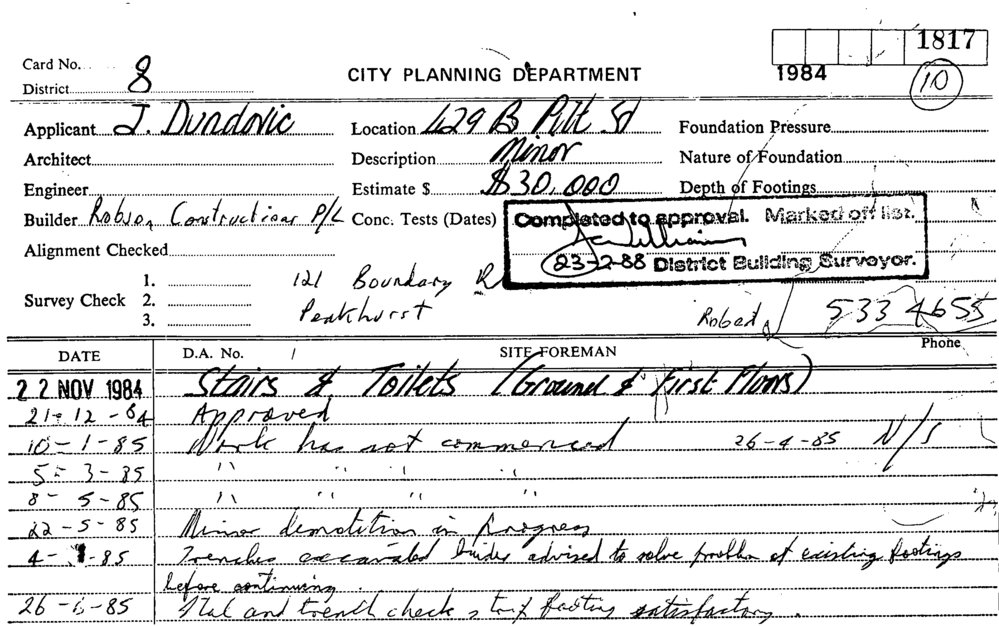 1817
Card No.
1984
10
District 8
CITY PLANNING DEPARTMENT
Applicant J. Dundovic Location 429 B Pitt St Foundation Pressure
Architect Description Minor Nature of Foundation
Engineer Estimate $ $30,000 Depth of Footings
Builder Robson Constructions P/L Conc. Tests (Dates)
Completed to approval. Marked off list.
23-2-88 District Building Surveyor.
Alignment Checked
1. 121 Boundary R
Survey Check 2. Peakhurst
3. Robert 533 4655
Phone
DATE D.A. No. SITE FOREMAN
22 NOV 1984 Stairs & Toilets (Ground & First Floors)
21-12-84 Approved
10-1-85 Work has not commenced 26-4-85 N/S
5-3-85 " " " "
8-5-85 " " " "
22-5-85 Minor demolition in Progress
4- -85 Trenches excavated advised to solve problem of existing footings
before continuing.
26-6-85 Steel and trench check strip footing satisfactory.